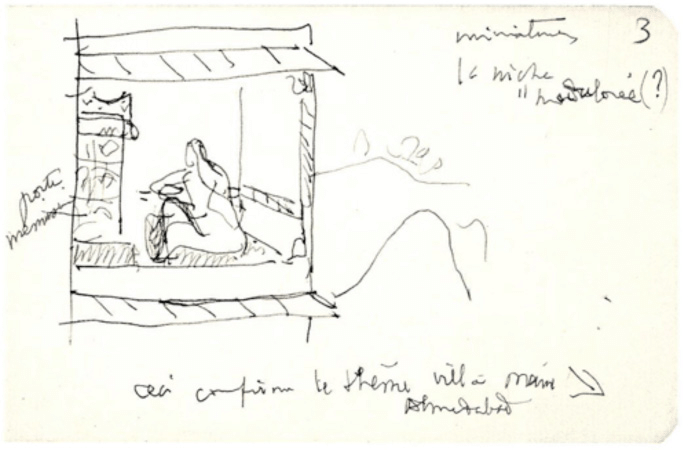 miniatures 3
la niche
"modulorée(?)
porte
ceci confirme le thème villa
Ahmedabad